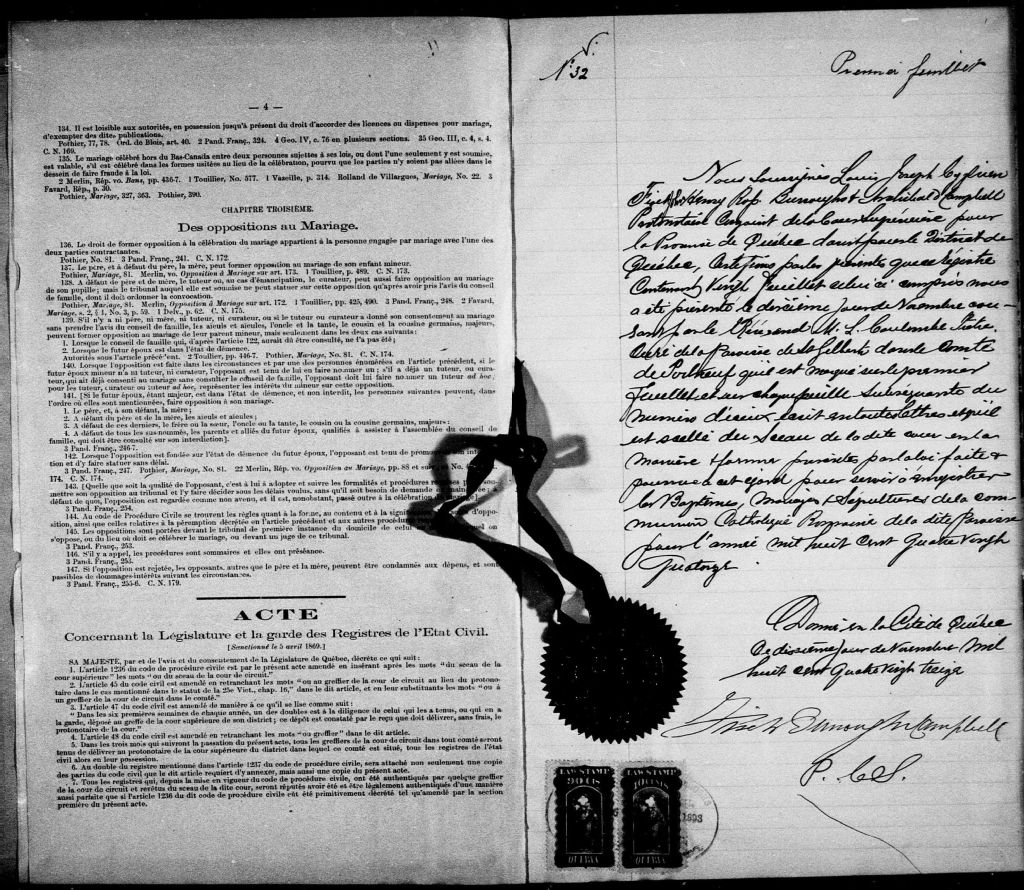 — 4 —
134. Il est loisible aux autorités, en possession jusqu'à présent du droit d'accorder des licences ou dispenses pour mariage,
d'exempter des dites publications.
Pothier, 77, 78. Ord. de Blois, art. 40. 2 Pand. Franç., 324. 4 Geo. IV, c. 76 en plusieurs sections. 35 Geo. III, c. 4, s. 4.
C. N. 169.
135. Le mariage célébré hors du Bas-Canada entre deux personnes sujettes à ses lois, ou dont l'une seulement y est soumise,
est valable, s'il est célébré dans les formes usitées au lieu de la célébration, pourvu que les parties n'y soient pas allées dans le
dessein de faire fraude à la loi.
2 Merlin, Rép. vo. Bans, pp. 436-7. 1 Touillier, No. 577. 1 Vazeille, p. 314. Rolland de Villargues, Mariage, No. 22. 3
Favard, Rép., p. 30.
Pothier, Mariage, 327, 363. Pothier, 390.
CHAPITRE TROISIÈME.
Des oppositions au Mariage.
136. Le droit de former opposition à la célébration du mariage appartient à la personne engagée par mariage avec l'une des
deux parties contractantes.
Pothier, No. 81. 3 Pand. Franç., 241. C. N. 172.
137. Le père, et à défaut du père, la mère, peut former opposition au mariage de son enfant mineur.
Pothier, Mariage, 81. Merlin, vo. Opposition à Mariage sur art. 173. 1 Touillier, p. 489. C. N. 173.
138. A défaut de père et de mère, le tuteur ou, au cas d'émancipation, le curateur, peut aussi faire opposition au mariage
de son pupille; mais le tribunal auquel elle est soumise ne peut statuer sur cette opposition qu'après avoir pris l'avis du conseil
de famille, dont il doit ordonner la convocation.
Pothier, Mariage, 81. Merlin, Opposition à Mariage sur art. 172. 1 Touillier, pp. 425, 490. 3 Pand. Franç., 248. 2 Favard,
Mariage, s. 2, § 1, No. 3, p. 59. 1 Delv., p. 62. C. N. 175.
139. S'il n'y a ni père, ni mère, ni tuteur, ni curateur, ou si le tuteur ou curateur a donné son consentement au mariage
sans prendre l'avis du conseil de famille, les aïeuls et aïeules, l'oncle et la tante, le cousin et la cousine germains, majeurs,
peuvent former opposition au mariage de leur parent mineur, mais seulement dans les deux cas suivants:
1. Lorsque le conseil de famille qui, d'après l'article 122, aurait dû être consulté, ne l'a pas été;
2. Lorsque le futur époux est dans l'état de démence.
Autorités sous l'article précédent. 2 Touillier, pp. 446-7. Pothier, Mariage, No. 81. C. N. 174.
140. Lorsque l'opposition est faite dans les circonstances et par une des personnes énoncées en l'article précédent, si le
futur époux mineur n'a ni tuteur, ni curateur, l'opposant est tenu de lui en faire nommer un; s'il a déjà un tuteur, ou cura-
teur, qui ait déjà consenti au mariage sans consulter le conseil de famille, l'opposant doit lui faire nommer un tuteur ad hoc,
pour les tuteur, curateur ou tuteur ad hoc, représenter les intérêts du mineur sur cette opposition.
141. [Si le futur époux, étant majeur, est dans l'état de démence, et non interdit, les personnes suivantes peuvent, dans
l'ordre où elles sont mentionnées, faire opposition à son mariage.
1. Le père, et, à son défaut, la mère;
2. A défaut du père et de la mère, les aïeuls et aïeules;
3. A défaut de ces derniers, le frère ou la sœur, l'oncle ou la tante, le cousin ou la cousine germains, majeurs;
4. A défaut de tous les sus-nommés, les parents et alliés du futur époux, qualifiés à assister à l'assemblée du conseil de
famille, qui doit être consulté sur son interdiction].
3 Pand. Franç., 246-7.
142. Lorsque l'opposition est fondée sur l'état de démence du futur époux, l'opposant est tenu de
tion et d'y faire statuer sans délai.
3 Pand. Franç., 247. Pothier, Mariage, No. 81. 22 Merlin, Rép. vo. Opposition au Mariage, pp. 88 et
174. C. N. 174.
143. [Quelle que soit la qualité de l'opposant, c'est à lui à adopter et suivre les formalités et procédures
mettre son opposition au tribunal et l'y faire décider sous les délais voulus, sans qu'il soit besoin de demande
défaut de quoi, l'opposition est regardée comme non avenue, et il est, nonobstant, passé outre à la célébration
3 Pand. Franç., 254.
144. Au code de Procédure Civile se trouvent les règles quant à la forme, au contenu et à la
sition, ainsi que celles relatives à la péremption décrétée en l'article précédent et aux autres procédures
145. Les oppositions sont portées devant le tribunal de première instance du domicile de celui
s'oppose, ou du lieu où doit se célébrer le mariage, ou devant un juge de ce tribunal.
3 Pand. Franç., 253.
146. S'il y a appel, les procédures sont sommaires et elles ont préséance.
3 Pand. Franç., 255.
147. Si l'opposition est rejetée, les opposants, autres que le père et la mère, peuvent être condamnés aux dépens, et sont
passibles de dommages-intérêts suivant les circonstances.
3 Pand. Franç., 255-6. C. N. 179.
ACTE
Concernant la Législature et la garde des Registres de l'Etat Civil.
[Sanctionné le 5 avril 1869.]
SA MAJESTÉ, par et de l'avis et du consentement de la Législature de Québec, décrète ce qui suit:
1. L'article 1236 du code de procédure civile est par le présent acte amendé en insérant après les mots "du sceau de la
cour supérieure" les mots "ou du sceau de la cour de circuit."
2. L'article 45 du code civil est amendé en retranchant les mots "ou au greffier de la cour de circuit au lieu du protono-
taire dans le cas mentionné dans le statut de la 25e Vict., chap. 16," dans le dit article, et en leur substituant les mots "ou à
un greffier de la cour de circuit dans le comté."
3. L'article 47 du code civil est amendé de manière à ce qu'il se lise comme suit:
"Dans les six premières semaines de chaque année, un des doubles est à la diligence de celui qui les a tenus, ou qui en a
la garde, déposé au greffe de la cour supérieure de son district; ce dépôt est constaté par le reçu que doit délivrer, sans frais, le
protonotaire de la cour."
4. L'article 48 du code civil est amendé en retranchant les mots "ou greffier" dans le dit article.
5. Dans les trois mois qui suivront la passation du présent acte, tous les greffiers de la cour de circuit dans tout comté seront
tenus de délivrer au protonotaire de la cour supérieure du district dans lequel ce comté est situé, tous les registres de l'état
civil alors en leur possession.
6. Au double du registre mentionné dans l'article 1237 du code de procédure civile, sera attaché non seulement une copie
des parties du code civil que le dit article requiert d'y annexer, mais aussi une copie du présent acte.
7. Tous les registres qui, depuis la mise en vigueur du code de procédure civile, ont été authentiqués par quelque greffier
de la cour de circuit et revêtus du sceau de la dite cour, seront réputés avoir été et être légalement authentiqués d'une manière
aussi parfaite que si l'article 1236 du dit code de procédure civile eût été primitivement décrété tel qu'amendé par la section
première du présent acte.
No. 32
Premier feuillet
Nous soussignés Louis Joseph Cyprien
Fiset, Henry Ross Burroughs & Archibald Campbell
Protonotaire Conjoint de la Cour Supérieure pour
la Province de Québec dans et pour le District de
Québec, Certifions par les présentes que ce registre
Contenant Vingt feuillets celui ci compris nous
a été présenté le dixième jour de Novembre cou-
rant par le Révérend M. L. Coulombe Ptre
Curé de la Paroisse de St Gilbert dans le Comté
de Portneuf qu'il est marqué sur le premier
feuillet et sur chaque feuille subséquente du
numéro d'iceux écrit en toutes lettres et qu'il
est scellé du sceau de la dite cour en la
manière & forme prescrite par la loi faite &
pourvue à cet égard pour servir à enregistrer
les Baptêmes, Mariages & Sépultures de la com-
munion Catholique Romaine de la dite Paroisse
pour l'année mil huit cent Quatre Vingt
Quatorze.
Donné en la Cité de Québec
Ce dixième jour de Novembre Mil
huit cent Quatre Vingt treize
Fiset Burroughs & Campbell
P. C. S.
LAW STAMP
LAW STAMP
10 CTS
QUEBEC
QUEBEC
1893